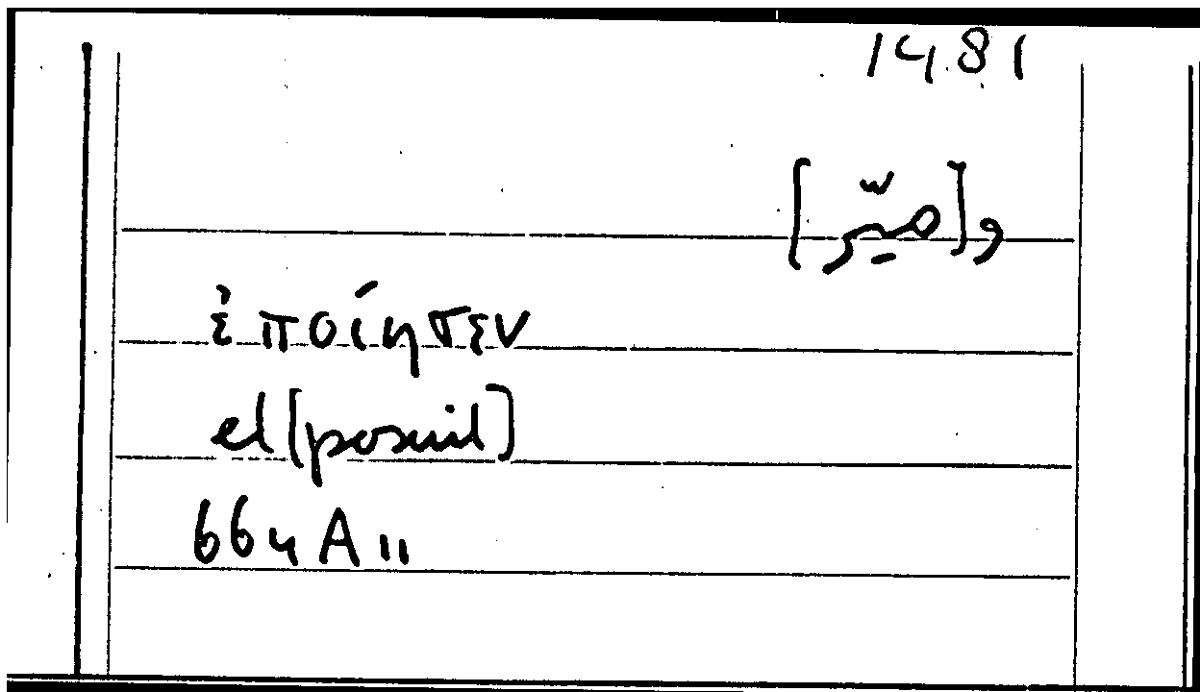 1481
و[صيّر]
ἐποίησεν
et [posuit]
664 A 11